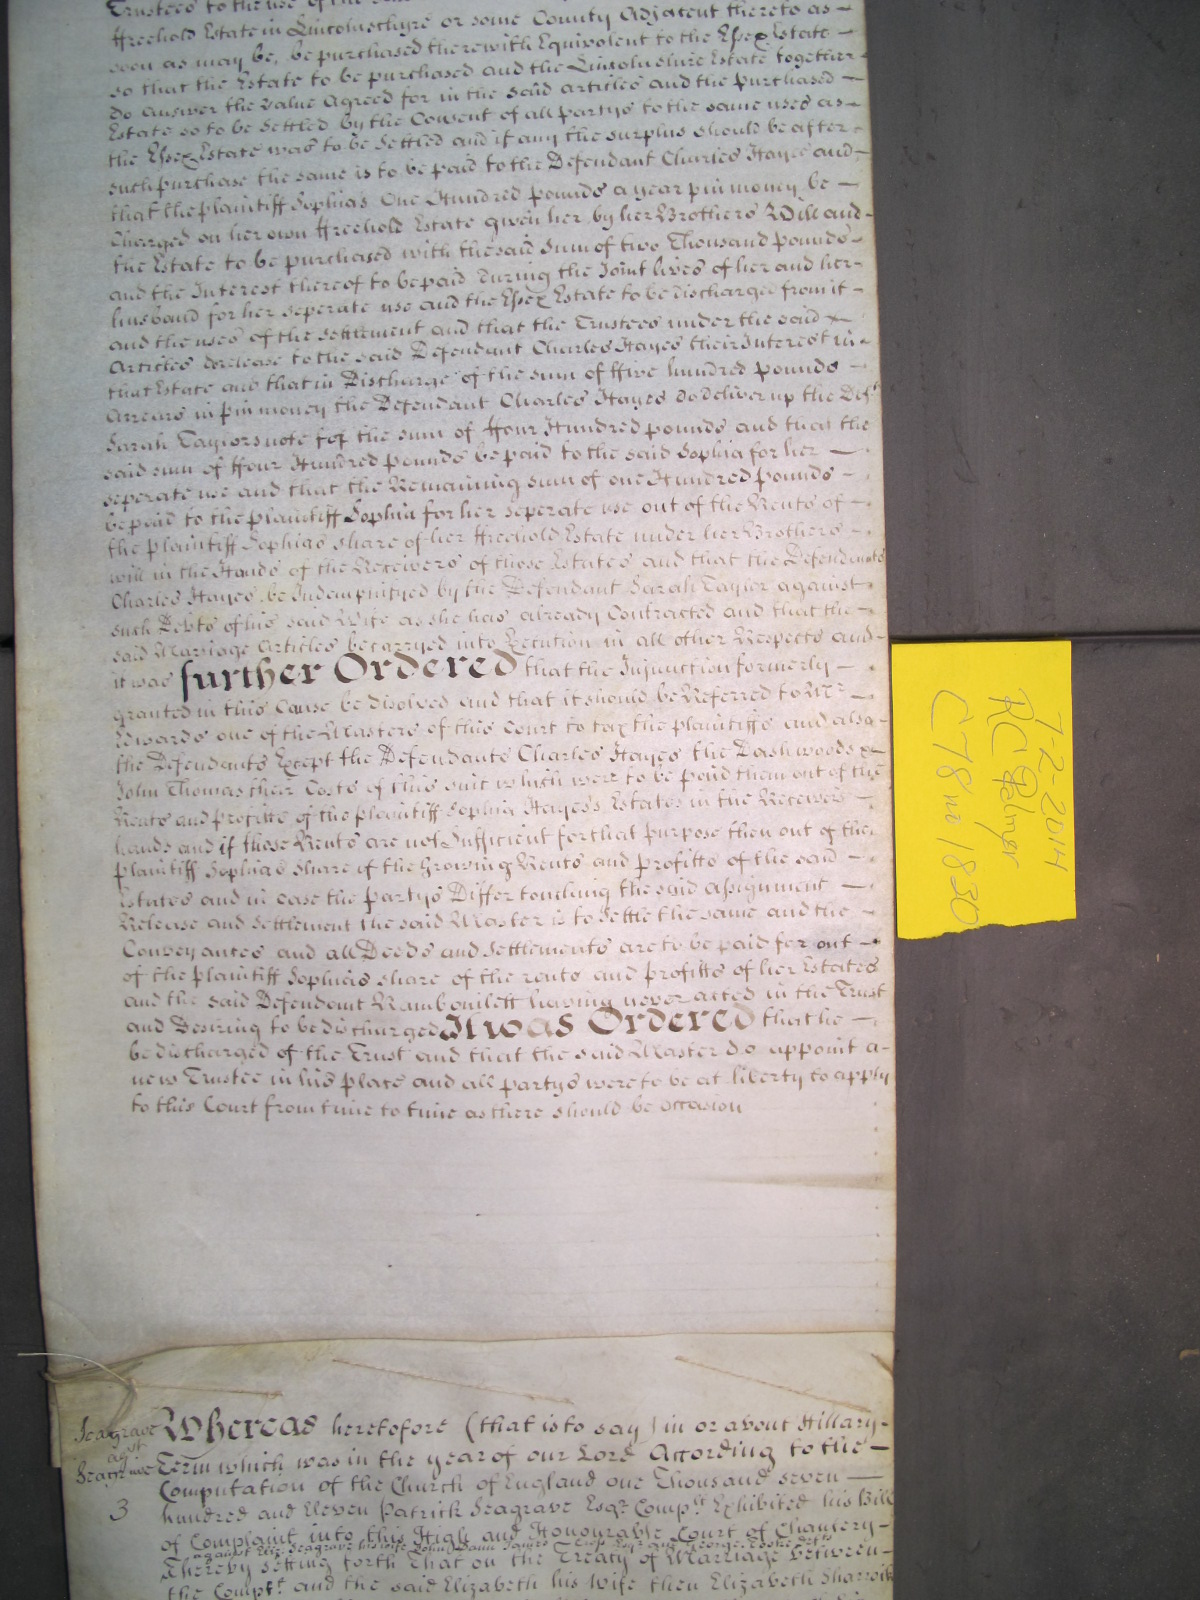 Trustees to the use of the
ffreehold Estate in Lincolnshyre or some County Adjacent thereto as
soon as may be, be purchased therewith Equivolent to the Essex Estate
so that the Estate to be purchased and the Lincolnshire Estate together
do answer the value Agreed for in the said articles and the purchased
Estate so to be Settled by the Consent of all partys to the same uses as
the Essex Estate was to be Settled and if any the surplus should be after
such purchase the same is to be paid to the Defendant Charles Hayes and
that the plaintiff Sophias One Hundred pounds a year pin money be
Charged on her own ffreehold Estate given her by her Brothers Will and
the Estate to be purchased with the said Sum of two Thousand pounds
and the Interest thereof to be paid During the Joint lives of her and her
husband for her seperate use and the Essex Estate to be discharged from it
and the uses of the settlement and that the Trustees under the said
Articles do release to the said Defendant Charles Hayes their Interest in
that Estate and that in Discharge of the sum of ffive hundred pounds
Arrears in pin money the Defendant Charles Hayes do deliver up the Def.t
Sarah Taylors note for the sum of ffour Hundred pounds and then the
said sum of ffour Hundred pounds be paid to the said Sophia for her
seperate use and that the Remaining sum of one Hundred pounds
be paid to the plaintiff Sophia for her seperate use out of the Rents of
the plaintiff Sophias share of her ffreehold Estate under her Brothers
will in the Hands of the Receivers of those Estates and that the Defendants
Charles Hayes be Indempnifyed by the Defendant Sarah Taylor against
such Debts of his said Wife as she has already Contracted and that the
said Marriage Articles be carryed into Execution in all other Respects and
it was further Ordered that the Injunction formerly
granted in this Cause be disolved and that it should be Referred to Mr
Edwards one of the Masters of this Court to tax the plaintiffs and also
the Defendants Except the Defendants Charles Hayes the Dashwoods &
John Thomas their Costs of this suit which were to be paid them out of the
Rents and profitts of the plaintiff Sophia Hayes's Estates in the Receivers
hands and if those Rents are not Sufficient for that purpose then out of the
plaintiff Sophias share if the Growing Rents and profitts of the said
Estates and in case the partys Differ touching the said assignment
Release and Settlement the said Master is to settle the same and the
Conveyances and all Deeds and Settlements are to be paid for out
of the plaintiff Sophias share of the rents and profitts of her Estates
and the said Defendant Rambouilett having never acted in the Trust
and Desiring to be discharged It was Ordered that he
be discharged of the Trust and that the said Master do appoint a
new Trustee in his place and all partys were to be at liberty to apply
to this Court from time to time as there should be occasion
7-2-2014
RC Palmer
C78 no 1830
Seagrave
agst
Seagrave
3
Whereas heretofore (that is to say) in or about Hillary
Term which was in the year of our Lord According to the
Computation of the Church of England one Thousand seven
hundred and Eleven Patrick Seagrave Esqr. Complt Exhibited his Bill
of Complaint into this High and Honourable Court of Chancery
against Eliz. Seagrave his wife John Esqr and George Cooke defts
Thereby setting forth That on the Treaty of Marriage between
the Complt. and the said Elizabeth his Wife then Elizabeth